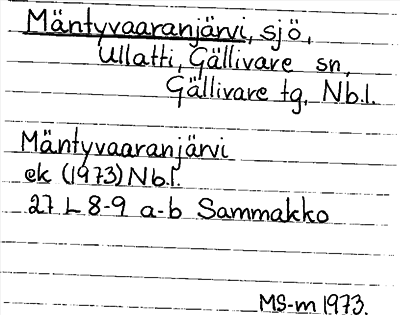 Mäntyvaaranjärvi, sjö,
Ullatti, Gällivare sn,
Gällivare tg, Nb.l.
Mäntyvaaranjärvi
ek (1973) Nb.l.
27 L 8-9 a-b Sammakko
MS-m 1973.